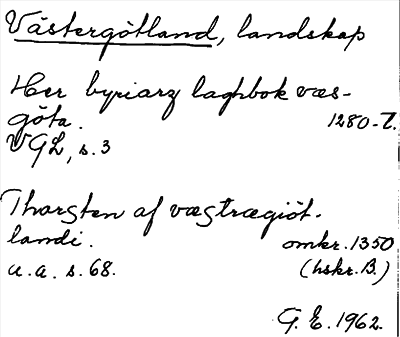 Västergötland, landskap
Her byriarz laghbok væs-
göta. 1280-t.
VGL, s. 3
Thorsten af væstrægiöt-
landi. omkr. 1350
a.a. s. 68. (hskr. B.)
G. E. 1962.